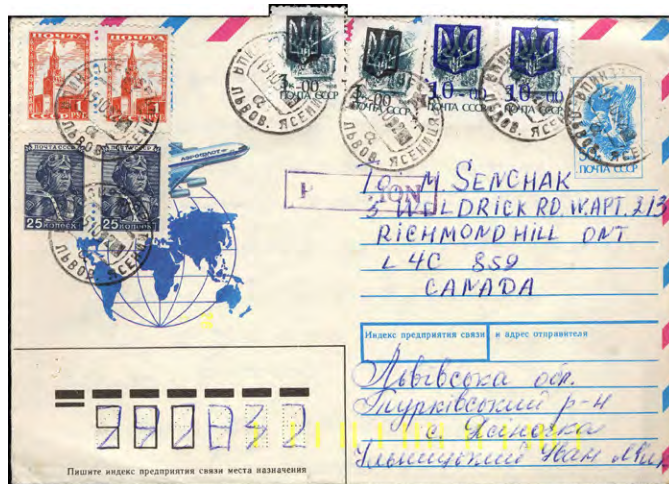 ПОЧТА
ПОЧТА
1
1
СССР РУБ.
ПОЧТА СССР
ПОЧТА СССР
25 КОПЕЕК
25 КОПЕЕК
ЛЬВОВ. ЯСЕНИЦА
АЭРОФЛОТ
1-00
ПОЧТА СССР
1-00
ПОЧТА СССР
10-00
ПОЧТА СССР
10-00
ПОЧТА СССР
ПОЧТА СССР
ЛЬВОВ. ЯСЕНИЦА
ЛЬВОВ. ЯСЕНИЦА
ЛЬВОВ. ЯСЕНИЦА
To M SENCHAK
5 WALDRICK RD. W.APT. 213
RICHMOND HILL ONT
L4C 8S9
CANADA
Индекс предприятия связи и адрес отправителя
Львівська обл.
Турківський р-н
с Ясіночка
Ільницький Іван
Пишите индекс предприятия связи места назначения